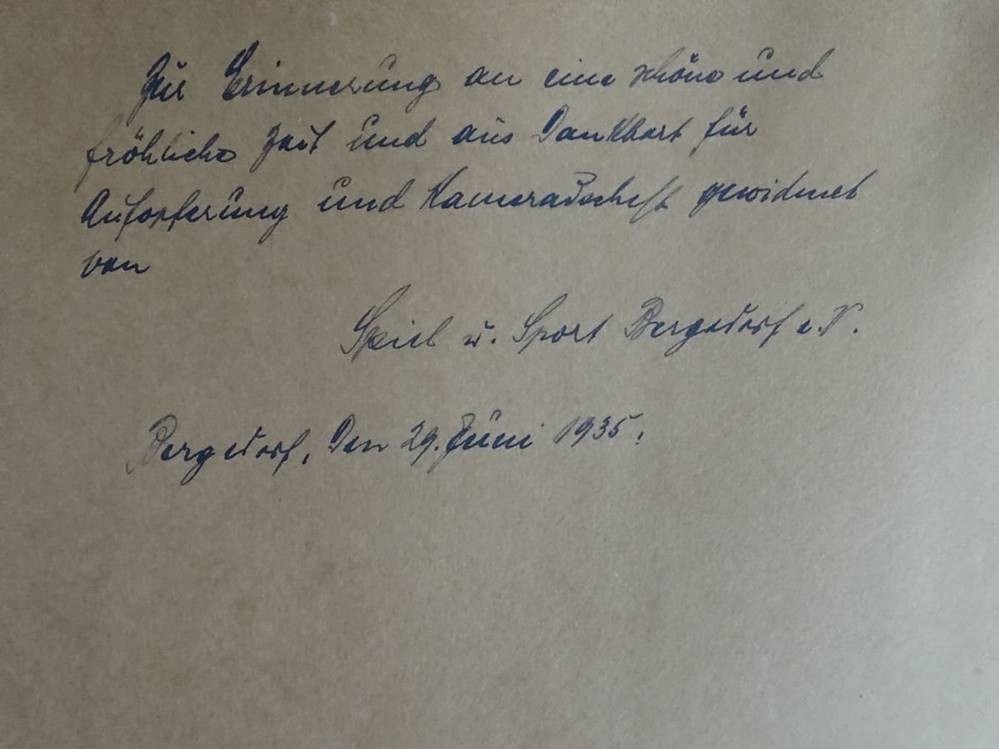 Zur Erinnerung an eine schöne und
fröhliche Zeit und aus Dankbart für
Aufopferung und Kameradschaft gewidmet
von
Spiel u. Sport Bergedorf e.V.
Bergedorf, den 29. Juni 1935.